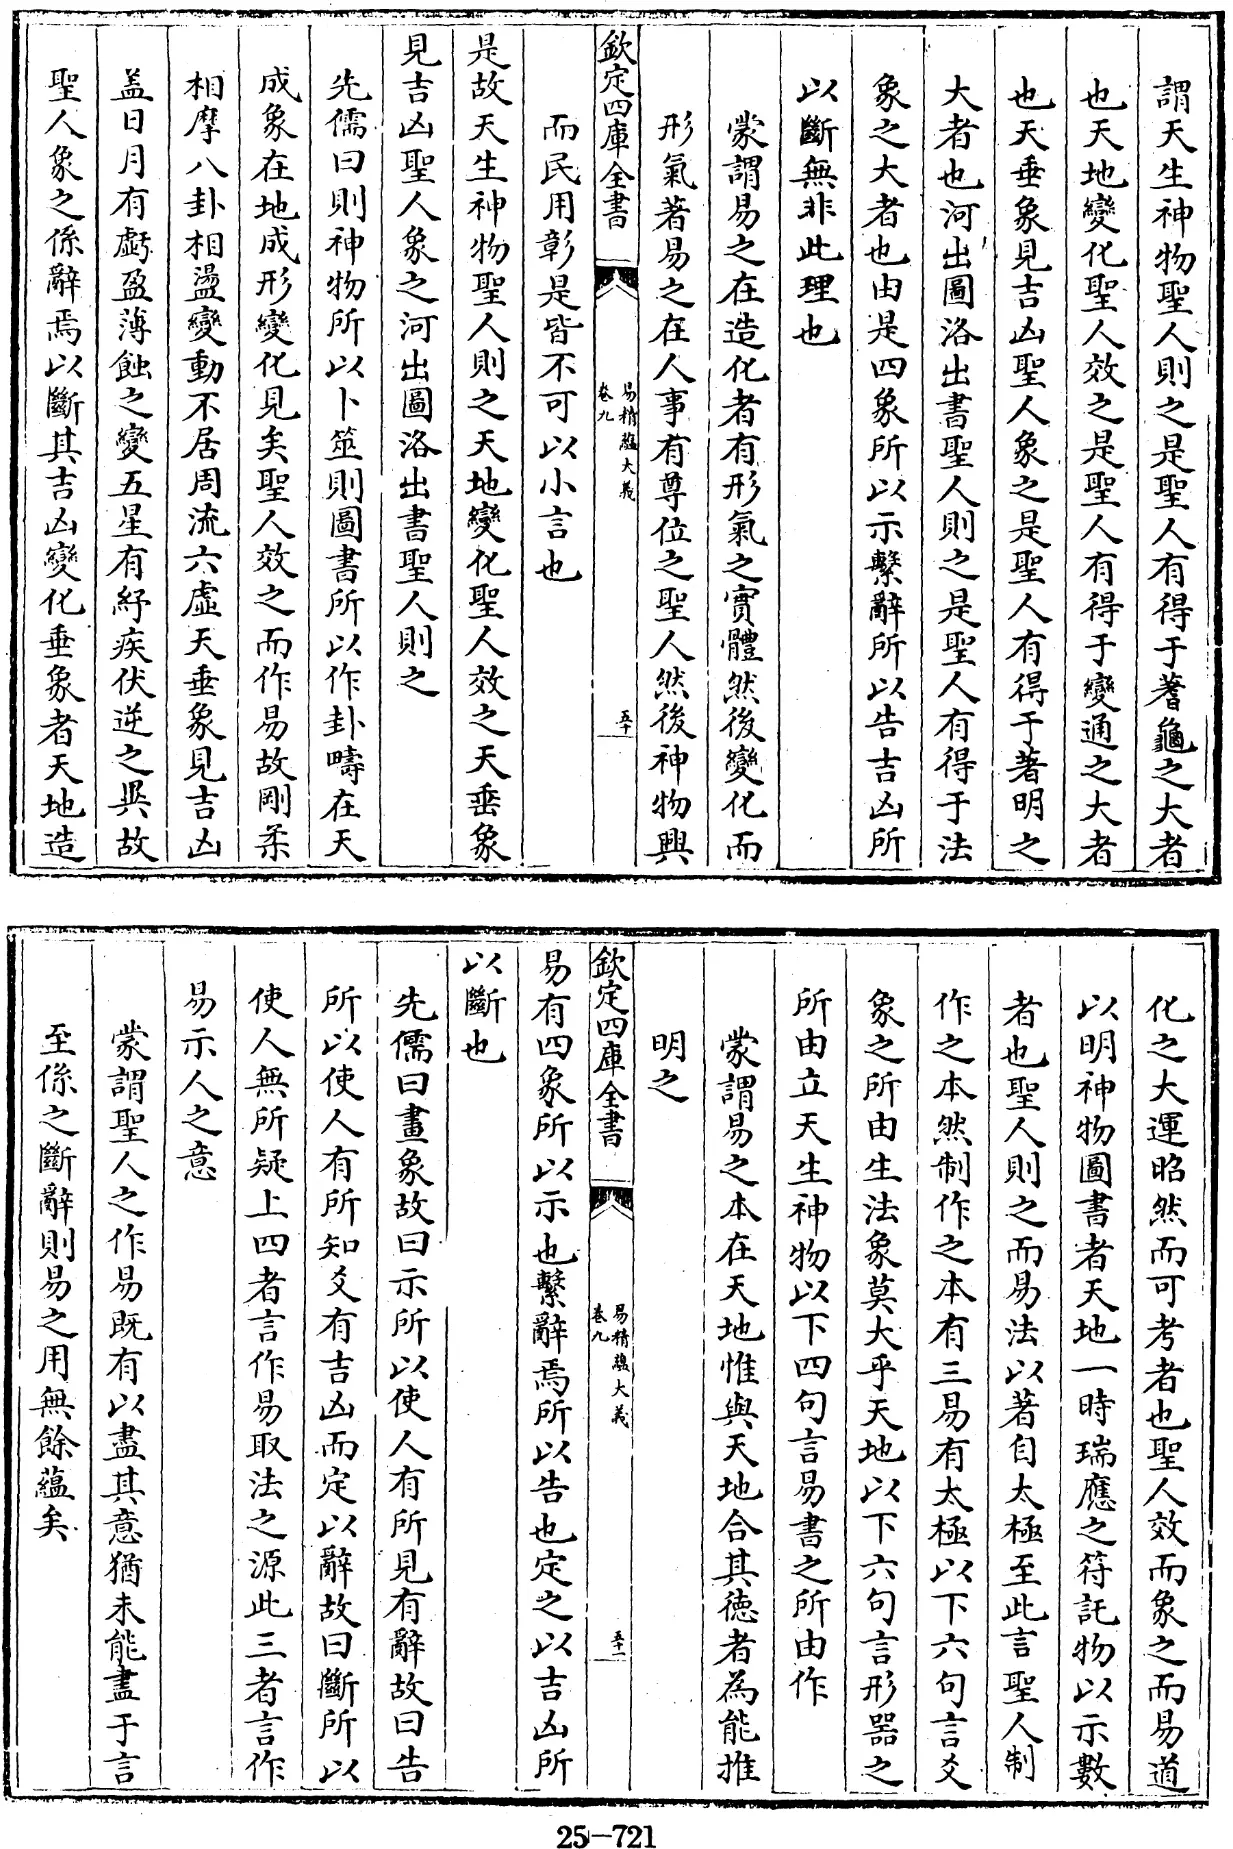 謂天生神物聖人則之是聖人有得于蓍龜之大者
也天地變化聖人效之是聖人有得于變通之大者
也天垂象見吉凶聖人象之是聖人有得于著明之
大者也河出圖洛出書聖人則之是聖人有得于法
象之大者也由是四象所以示繫辭所以告吉凶所
以斷無非此理也
蒙謂易之在造化者有形氣之實體然後變化而
形氣著易之在人事有尊位之聖人然後神物興
欽定四庫全書
易精蘊大義
卷九
五十
而民用彰是皆不可以小言也
是故天生神物聖人則之天地變化聖人效之天垂象
見吉凶聖人象之河出圖洛出書聖人則之
先儒曰則神物所以卜筮則圖書所以作卦疇在天
成象在地成形變化見矣聖人效之而作易故剛柔
相摩八卦相盪變動不居周流六虛天垂象見吉凶
盖日月有虧盈薄蝕之變五星有紓疾伏逆之異故
聖人象之係辭焉以斷其吉凶變化垂象者天地造
化之大運昭然而可考者也聖人效而象之而易道
以明神物圖書者天地一時瑞應之符託物以示數
者也聖人則之而易法以著自太極至此言聖人制
作之本然制作之本有三易有太極以下六句言爻
象之所由生法象莫大乎天地以下六句言形器之
所由立天生神物以下四句言易書之所由作
蒙謂易之本在天地惟與天地合其德者為能推
明之
欽定四庫全書
易精蘊大義
卷九
五十一
易有四象所以示也繫辭焉所以告也定之以吉凶所
以斷也
先儒曰畫象故曰示所以使人有所見有辭故曰告
所以使人有所知爻有吉凶而定以辭故曰斷所以
使人無所疑上四者言作易取法之源此三者言作
易示人之意
蒙謂聖人之作易既有以盡其意猶未能盡于言
至係之斷辭則易之用無餘蘊矣
25-721